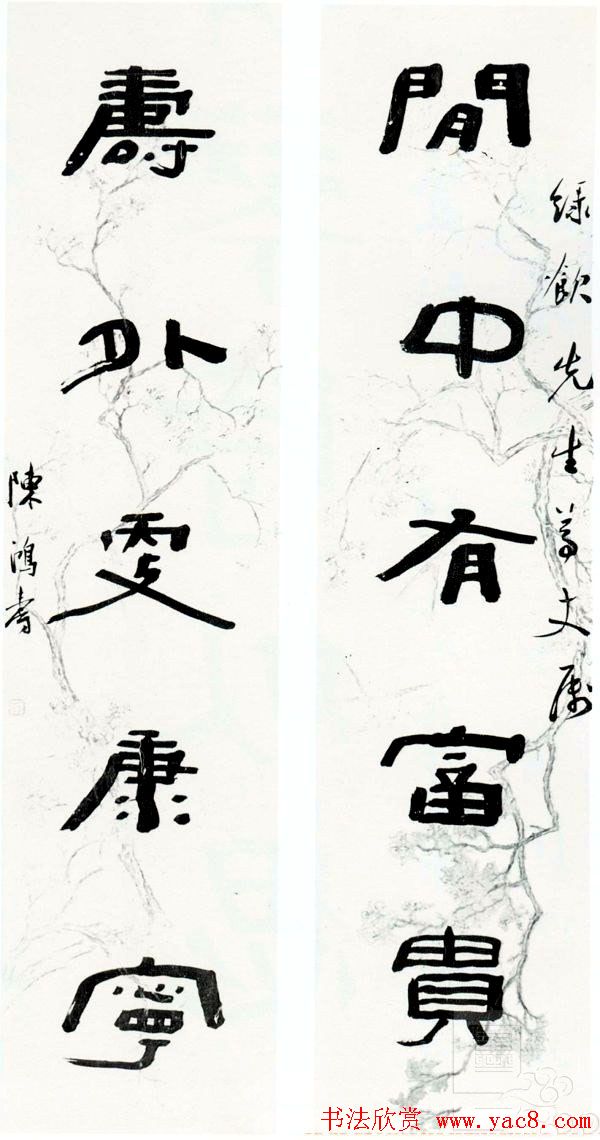 閒中有富貴
綠飲先生尊丈屬
壽外更康寧
陳鴻壽
书法欣赏 www.yac8.com